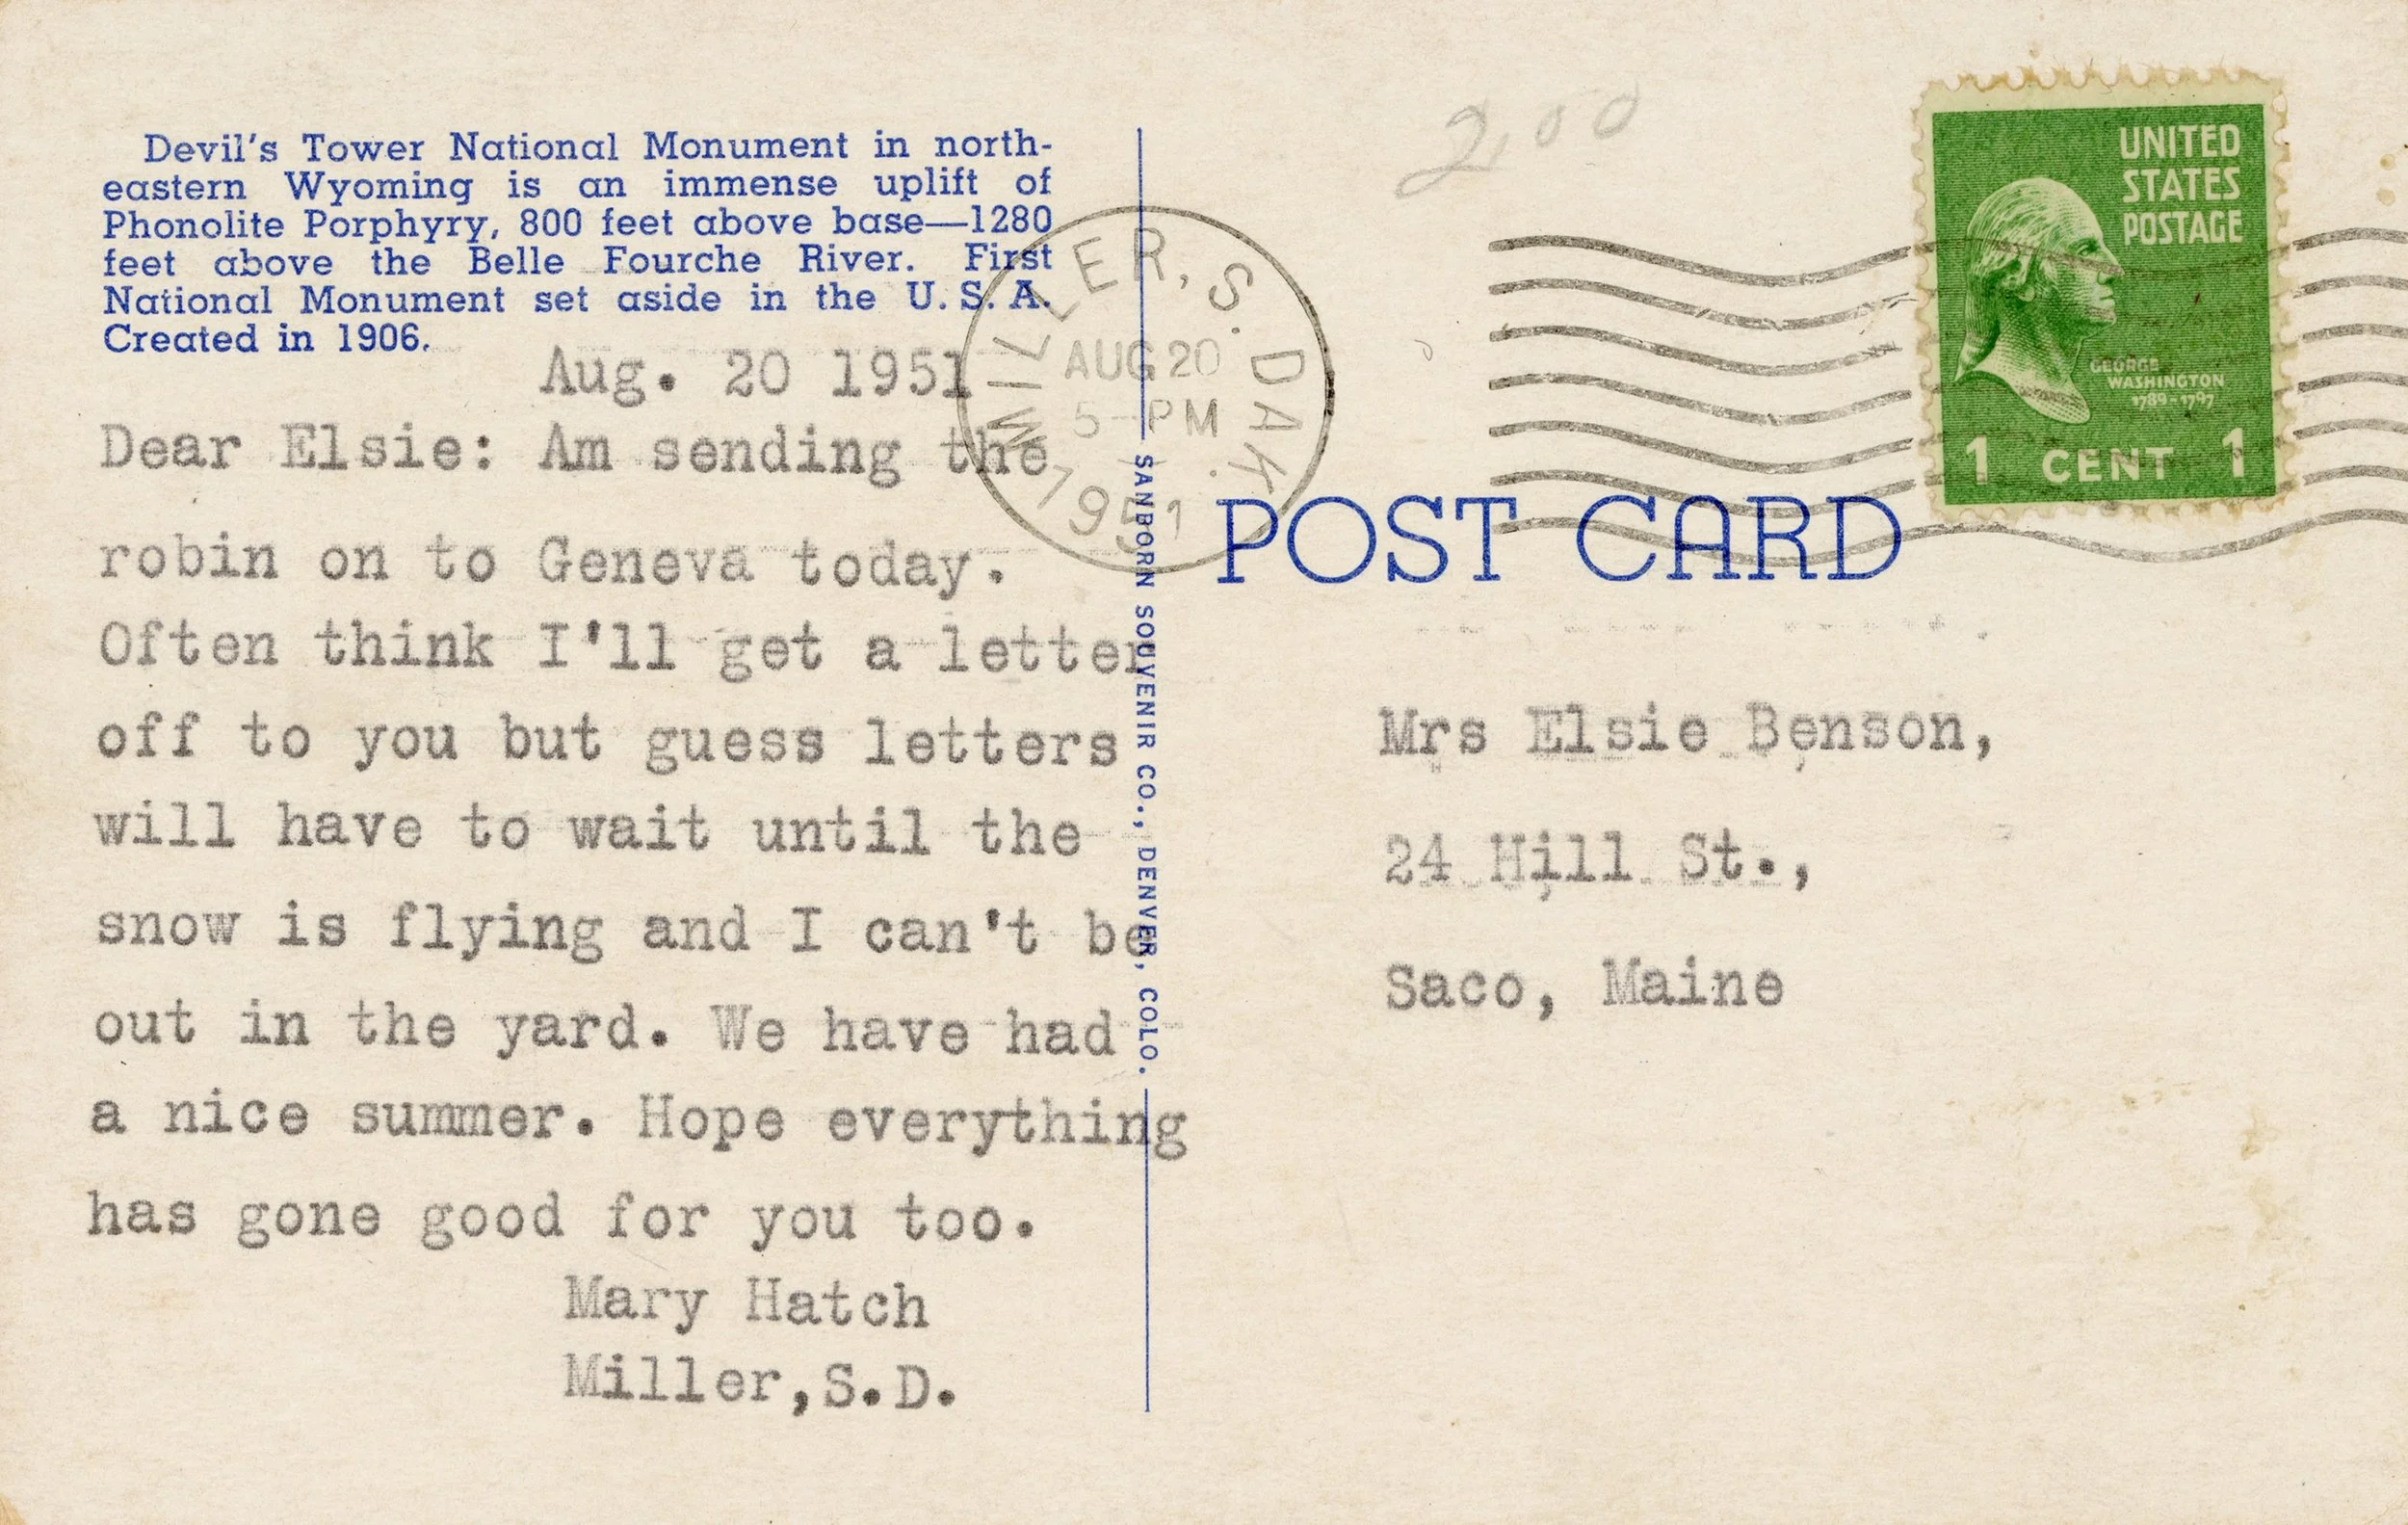 Devil's Tower National Monument in north-
eastern Wyoming is an immense uplift of
Phonolite Porphyry, 800 feet above base—1280
feet above the Belle Fourche River. First
National Monument set aside in the U. S. A.
Created in 1906.
Aug. 20 1951
Dear Elsie: Am sending the
robin on to Geneva today.
Often think I'll get a letter
off to you but guess letters
will have to wait until the
snow is flying and I can't be
out in the yard. We have had
a nice summer. Hope everything
has gone good for you too.
Mary Hatch
Miller,S.D.
SANBORN SOUVENIR CO., DENVER, COLO.
MILLER, S. DAK.
AUG 20
5-PM
1951
2,00
UNITED
STATES
POSTAGE
GEORGE
WASHINGTON
1789-1797
1 CENT 1
POST CARD
Mrs Elsie Benson,
24 Hill St.,
Saco, Maine